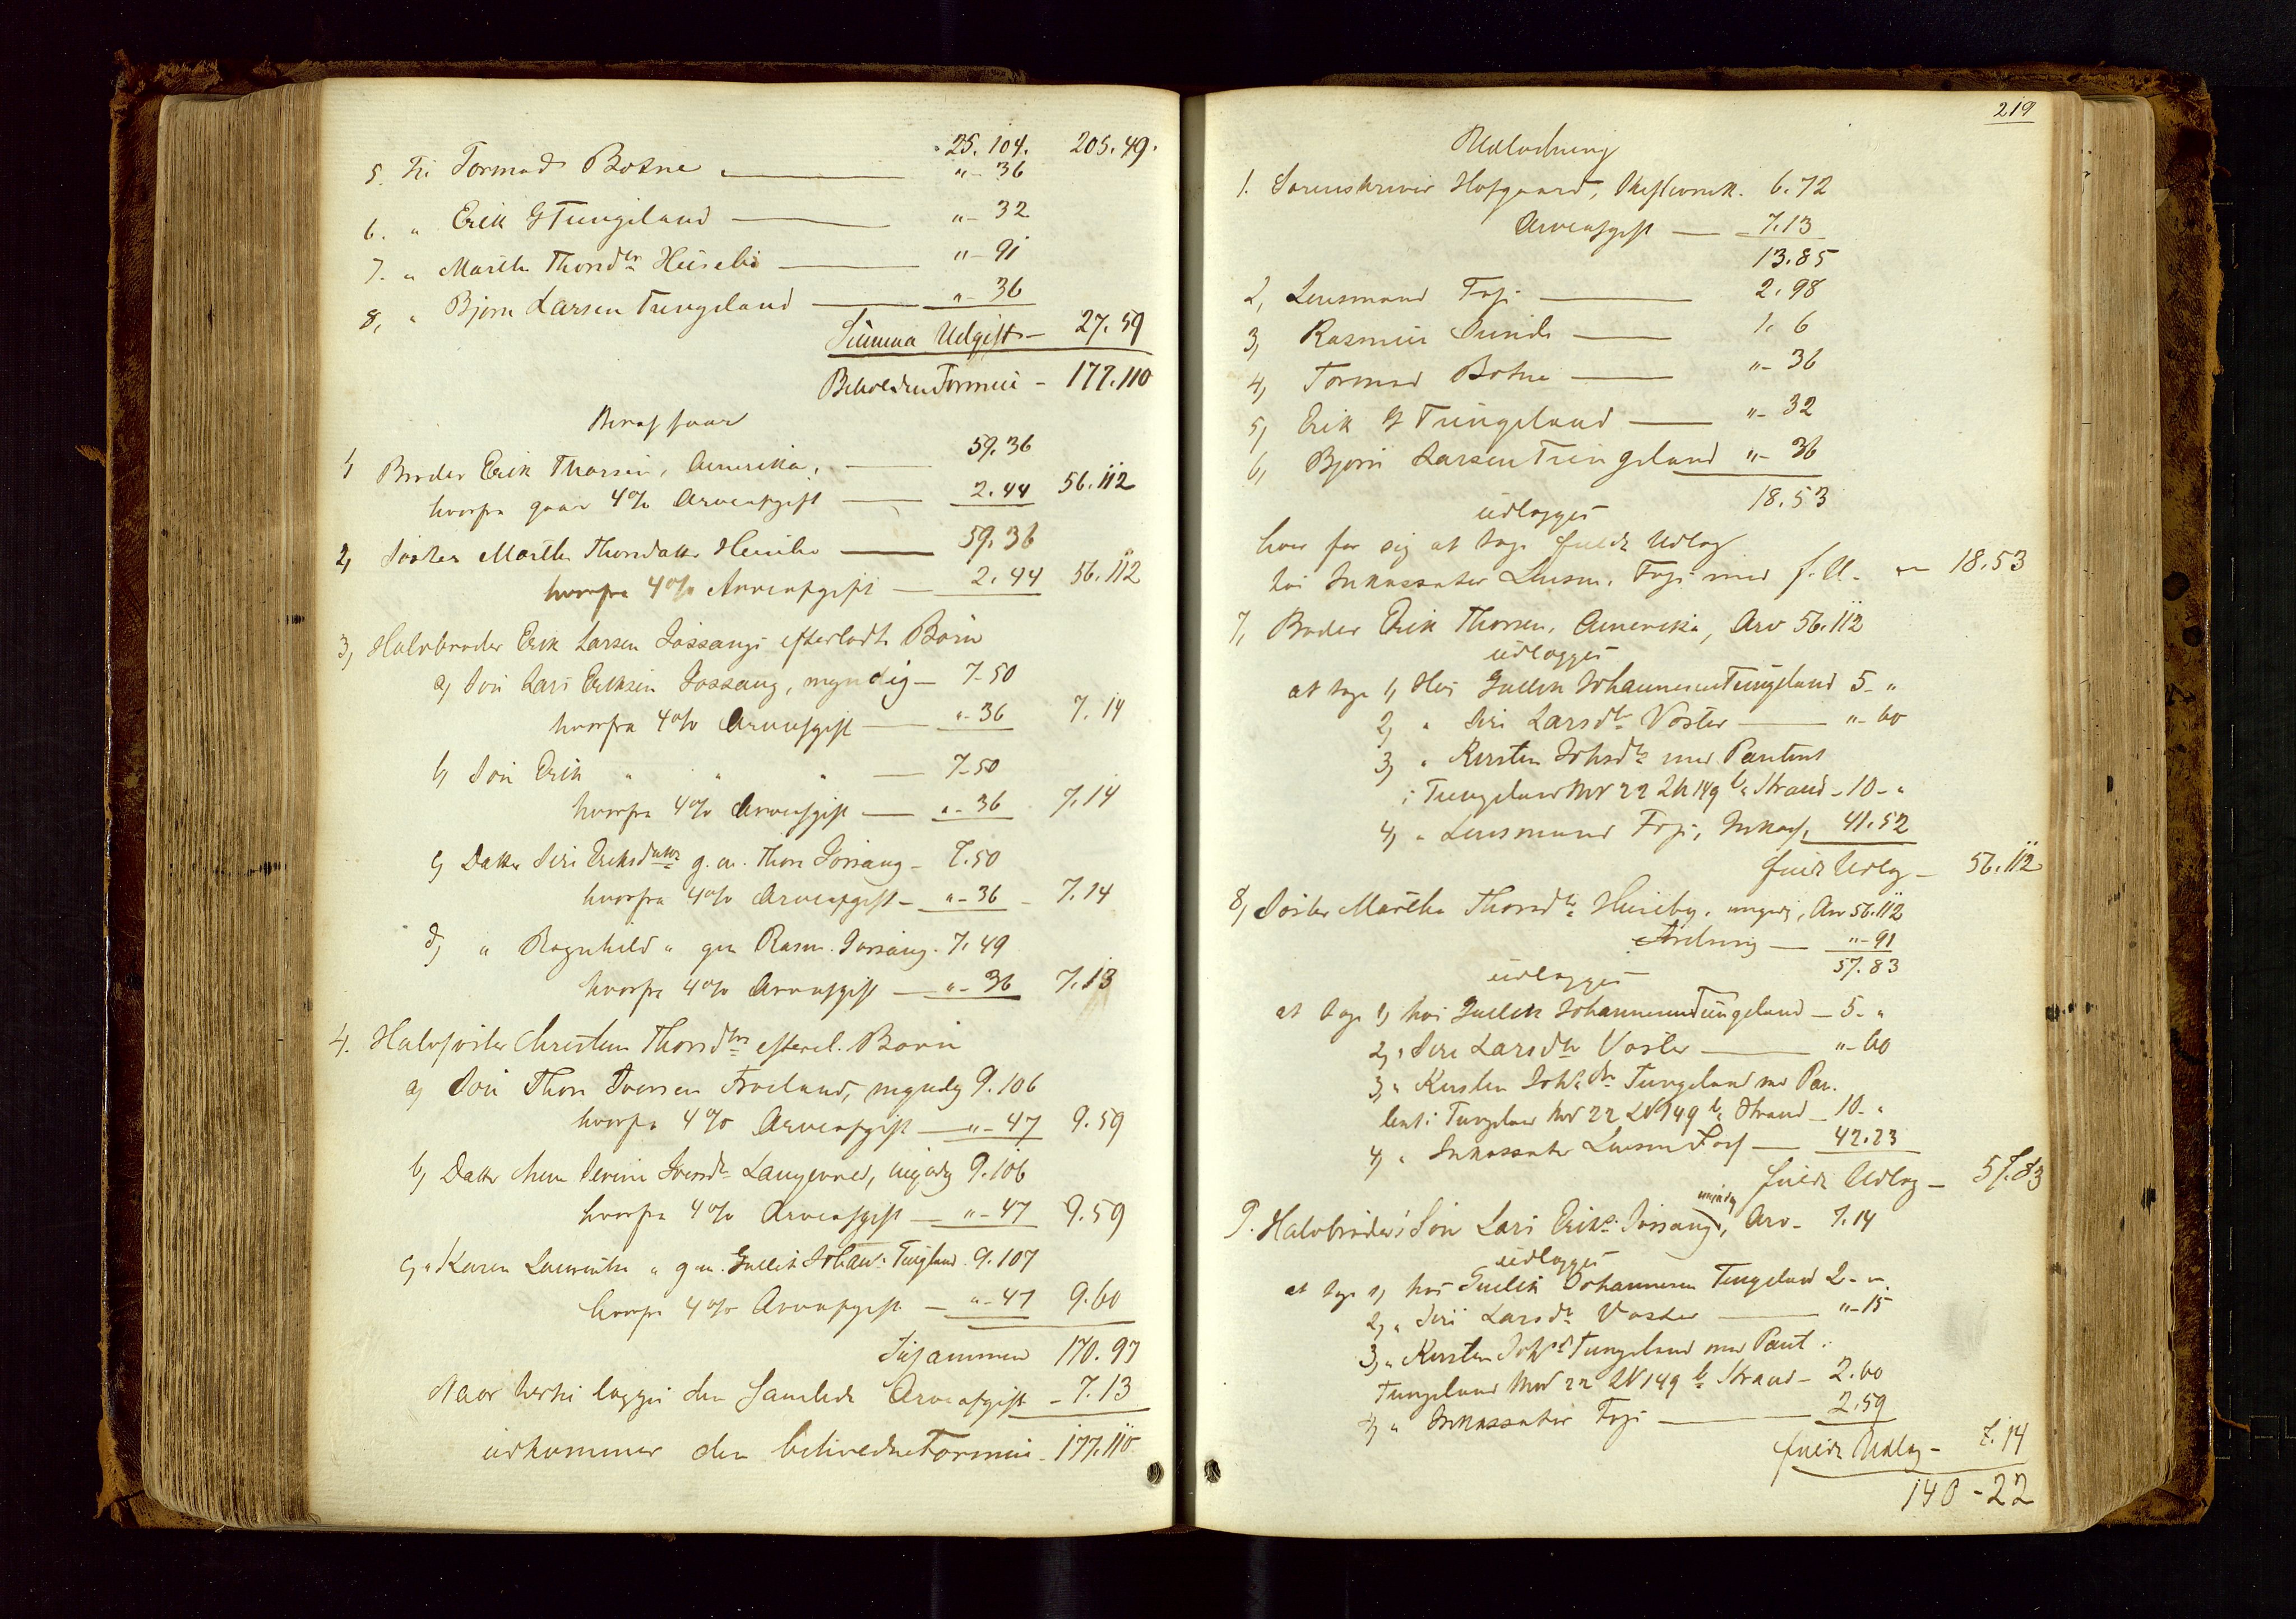 25.104. 205.49.
5. Til Tormod Botne — " - 36
6. " Erik G Tungeland — " - 32
7. " Marthe Thorsdtr Huseby — " - 91
8, " Bjørn Larsen Tungeland — " - 36
Summa Udgift - 27.59
Beholden Formue - 177.110
1, Broder Erik Thorsen, Amerika, — 59.36
hvorfra gaar 4% Arveafgift — 2.44 56.112
2, Søster Marthe Thorsdatter Huseby — 59.36
hvorfra 4% Arveafgift — 2.44 56.112
3, Halvbroder Erik Larsen Jøssangs efterladte Børn
a, Søn Lars Eriksen Jøssang, myndig - 7-50
hvorfra 4% Arveafgift — " - 36 7.14
b, Søn Erik " " " — 7-50
hvorfra 4% Arveafgift — " - 36 7.14
c, Datter Siri Eriksdatter g. m. Thore Jøssang - 7.50
hvorfra 4% Arveafgift - " - 36 - 7.14
d, " Ragnhild " gm Rasm. Jøssang - 7.49
hvorfra 4% Arveafgift — " - 36 7.13
4. Halvsøster Christine Thorsdtrs efterl. Børn
a, Søn Thore Iversen Frøland, myndig 9.106
hvorfra 4% Arveafgift — " - 47 9.59
b, Datter Severine Iversdtr Langevned, 9.106
hvorfra 4% Arveafgift — " - 47 9.59
c, " Karen Laurentse " g m. Gullik Johans: Tungland 9.107
hvorfra 4% Arveafgift — " - 47 9.60
Tilsammen 170.97
Naar hertil lægges den samlede Arveafgift - 7.13
udkommer den beholdne Formue - 177.110
219
Udlodning
1. Sorenskriver Hofgaard, Skifteomk. 6.72
Arveafgift — 7.13
13.85
2, Lensmand — 2.98
3, Rasmus Sunde — 1. 6
4, Tormod Botne — " - 36
5, Erik G Tungeland — " - 32
6, Bjørn Larsen Tungeland " - 36
18.53
udlægges
hver for sig at tage fuldt Udlæg
hos Inkassator Lensm. med f. U. - 18.53
7, Broder Erik Thorsen, Amerika, Arv 56.112
udlægges
at tage 1, Hos Gullik Johannesen Tungeland 5 - "
2, " Siri Larsdtr Voster — " - 60
3, " Kirsten Johsdtr med Panteret
i Tungeland Mno 22 LN 149 b, Strand - 10 - "
4, " Lensmand 41.52
fuldt Udlæg - 56.112
8, Søster Marthe Thorsdtr Huseby, Arv 56.112
Fordring — " - 91
57.83
udlægges
at tage 1, hos Gullik Johannesen Tungeland - 5 - "
2, " Siri Larsdtr Voster — " - 60
3, " Kirsten Johsdtr Tungeland med Pan-
teret i Tungeland Mno 22 LN 149 b, Strand - 10 - "
4, " Inkassator Lensm — 42.23
fuldt Udlæg - 57.83
9. Halvbroders Søn Lars Eriks: Jøssang, myndig, Arv - 7.14
udlægges
at tage 1, hos Gullik Johannesen Tungeland 2 - "
2, " Siri Larsdtr Voster — " - 15
3, " Kirsten Johsdtr Tungeland med Pant i
Tungeland Mno 22 LN 149 b, Strand - 2.60
4, " Inkassator — 2.59
fuldt Udlæg - 7.14
140 - 22